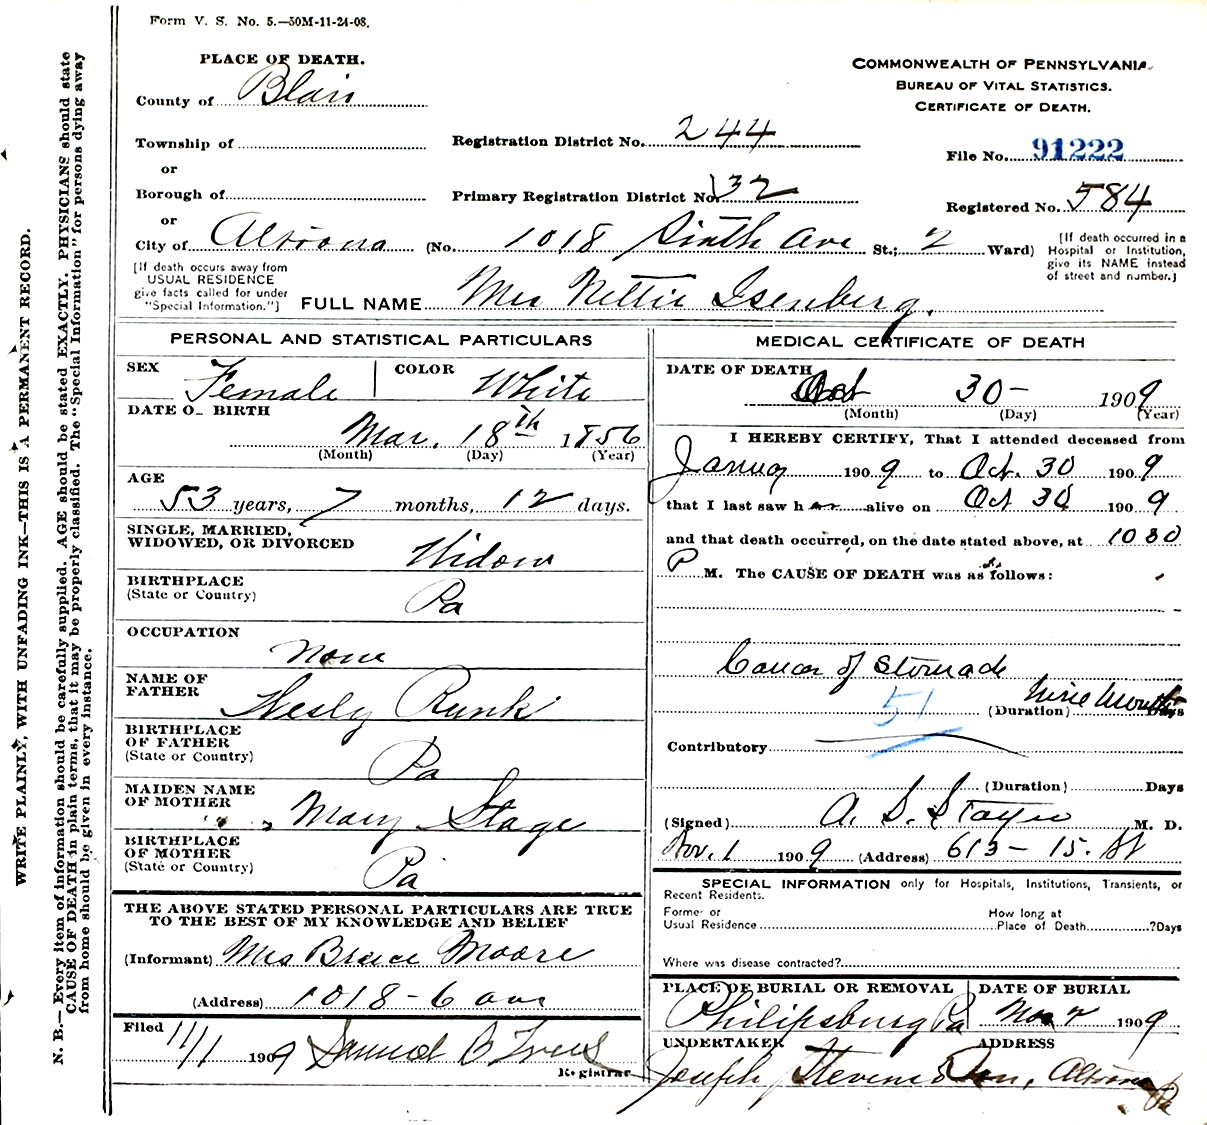 Form V. S. No. 5.—50M-11-24-08.
PLACE OF DEATH.
County of Blair
Township of
or
Borough of
or
City of Altoona (No. 1018 Sixth Ave St.; 2 Ward)
[If death occurs away from USUAL RESIDENCE give facts called for under "Special Information."]
Registration District No. 244
Primary Registration District No. 132
COMMONWEALTH OF PENNSYLVANIA.
BUREAU OF VITAL STATISTICS.
CERTIFICATE OF DEATH.
File No. 91222
Registered No. 584
[If death occurred in a Hospital or Institution, give its NAME instead of street and number.]
FULL NAME Mrs Nettie Isenberg.
PERSONAL AND STATISTICAL PARTICULARS
SEX Female
COLOR White
DATE O_ BIRTH
Mar. 18th 1856
(Month) (Day) (Year)
AGE
53 years, 7 months, 12 days.
SINGLE, MARRIED,
WIDOWED, OR DIVORCED Widow
BIRTHPLACE
(State or Country) Pa
OCCUPATION
None
NAME OF
FATHER Wesly Runk
BIRTHPLACE
OF FATHER
(State or Country) Pa
MAIDEN NAME
OF MOTHER Mary Stage
BIRTHPLACE
OF MOTHER
(State or Country) Pa
THE ABOVE STATED PERSONAL PARTICULARS ARE TRUE
TO THE BEST OF MY KNOWLEDGE AND BELIEF
(Informant) Mrs Moore
(Address) 1018-6 ave
Filed 11/1 1909 Samuel B
Registrar
MEDICAL CERTIFICATE OF DEATH
DATE OF DEATH
Oct 30- 1909
(Month) (Day) (Year)
I HEREBY CERTIFY, That I attended deceased from
January 1909 to Oct. 30 1909
that I last saw her alive on Oct 30 1909
and that death occurred, on the date stated above, at 1030
P M. The CAUSE OF DEATH was as follows:
Cancer of Stomach
51 (Duration) Nine Months Days
Contributory
(Duration) Days
(Signed) A. S. Stayer M. D.
Nov. 1 1909 (Address) 613-15. St
SPECIAL INFORMATION only for Hospitals, Institutions, Transients, or
Recent Residents.
Former or
Usual Residence
How long at
Place of Death ?Days
Where was disease contracted?
PLACE OF BURIAL OR REMOVAL
Philipsburg Pa
DATE OF BURIAL
Nov 2 1909
UNDERTAKER
Joseph Stevens & Son,
ADDRESS
Altoona Pa
WRITE PLAINLY, WITH UNFADING INK—THIS IS A PERMANENT RECORD.
N. B.—Every item of information should be carefully supplied. AGE should be stated EXACTLY. PHYSICIANS should state
CAUSE OF DEATH in plain terms, that it may be properly classified. The "Special Information" for persons dying away
from home should be given in every instance.